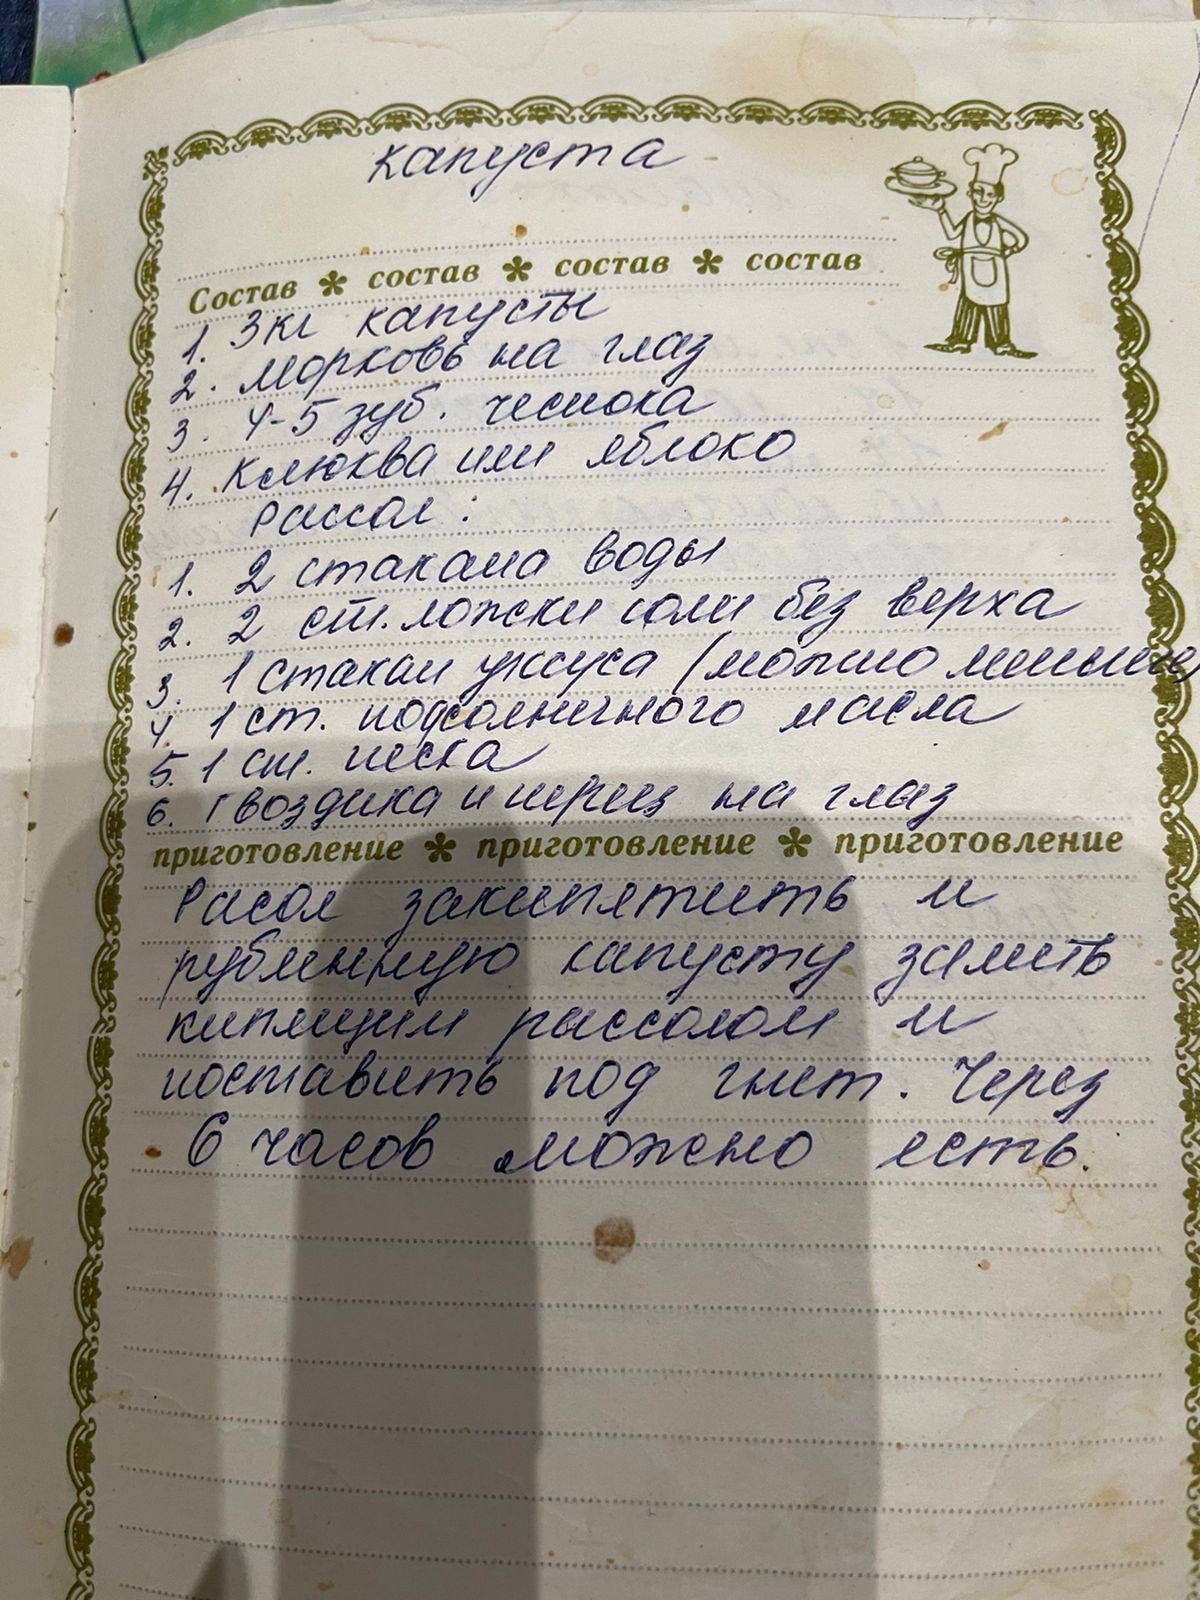 капуста
Состав * состав * состав * состав
1. 3кг капусты
2. морковь на глаз
3. 4-5 зуб. чеснока
4. Клюква или яблоко
Рассол:
1. 2 стакана воды
2. 2 ст. ложки соли без верха
3. 1 стакан уксуса (можно меньше)
4. 1 ст. подсолнечного масла
5. 1 ст. песка
6. Гвоздика и перец на глаз
приготовление * приготовление * приготовление
Расол закипятить и
рубленную капусту залить
кипящим рассолом и
поставить под гнет. Через
6 часов можно есть.